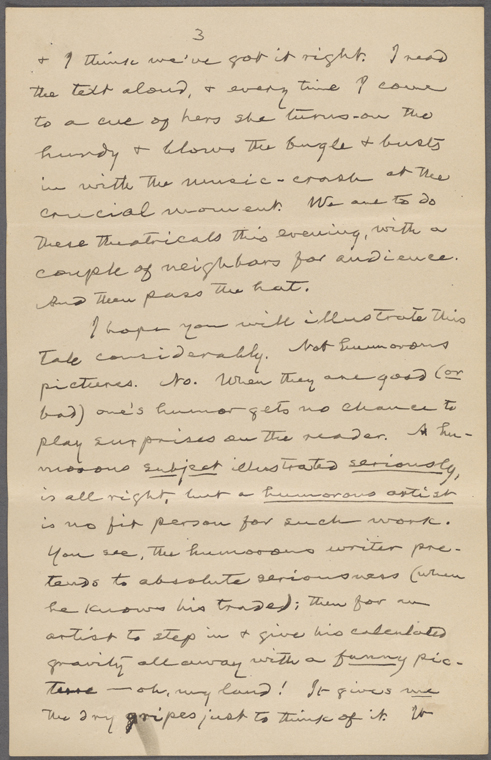 3
& I think we've got it right. I read
the text aloud, & every time I come
to a cue of hers she turns-on the
hurdy & blows the bugle & busts
in with the music-crash at the
crucial moment. We are to do
these theatricals this evening, with a
couple of neighbors for audience.
And then pass the hat.
I hope you will illustrate this
tale considerably. Not humorous
pictures. No. When they are good (or
bad) one's humor gets no chance to
play surprises on the reader. A hu-
morous subject illustrated seriously,
is all right, but a humorous artist
is no fit person for such work.
You see, the humorous writer pre-
tends to absolute seriousness (when
he knows his trade); then for an
artist to step in & give his calculated
gravity all away with a funny pic-
ture — oh, my land! It gives me
the dry gripes just to think of it. It